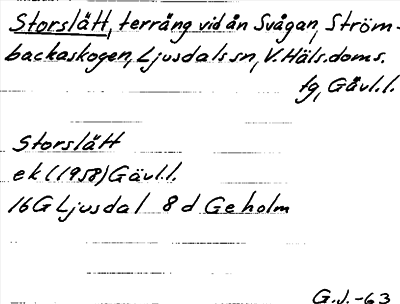 Storslått, terräng vid ån Svågan, Ström-
backaskogen, Ljusdals sn, V. Häls. doms.
tg, Gävl.l.
Storslått
ek (1958) Gävl.l.
16G Ljusdal 8 d Geholm
G.J.-63